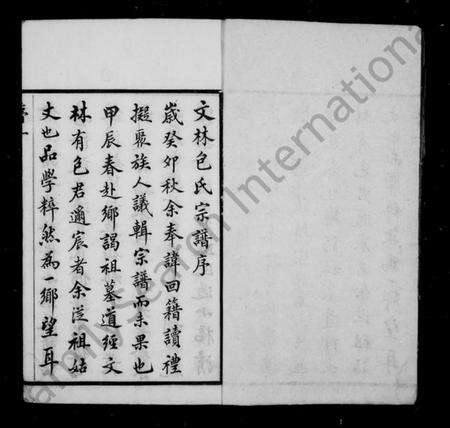 文林包氏宗譜序
歲癸卯秋余奉諱回籍讀禮
擬聚族人議輯宗譜而未果也
甲辰春赴鄉謁祖墓道經文
林有包君適宸者余從祖姑
丈也品學粹然為一鄉望耳
序一
FamilySearch International